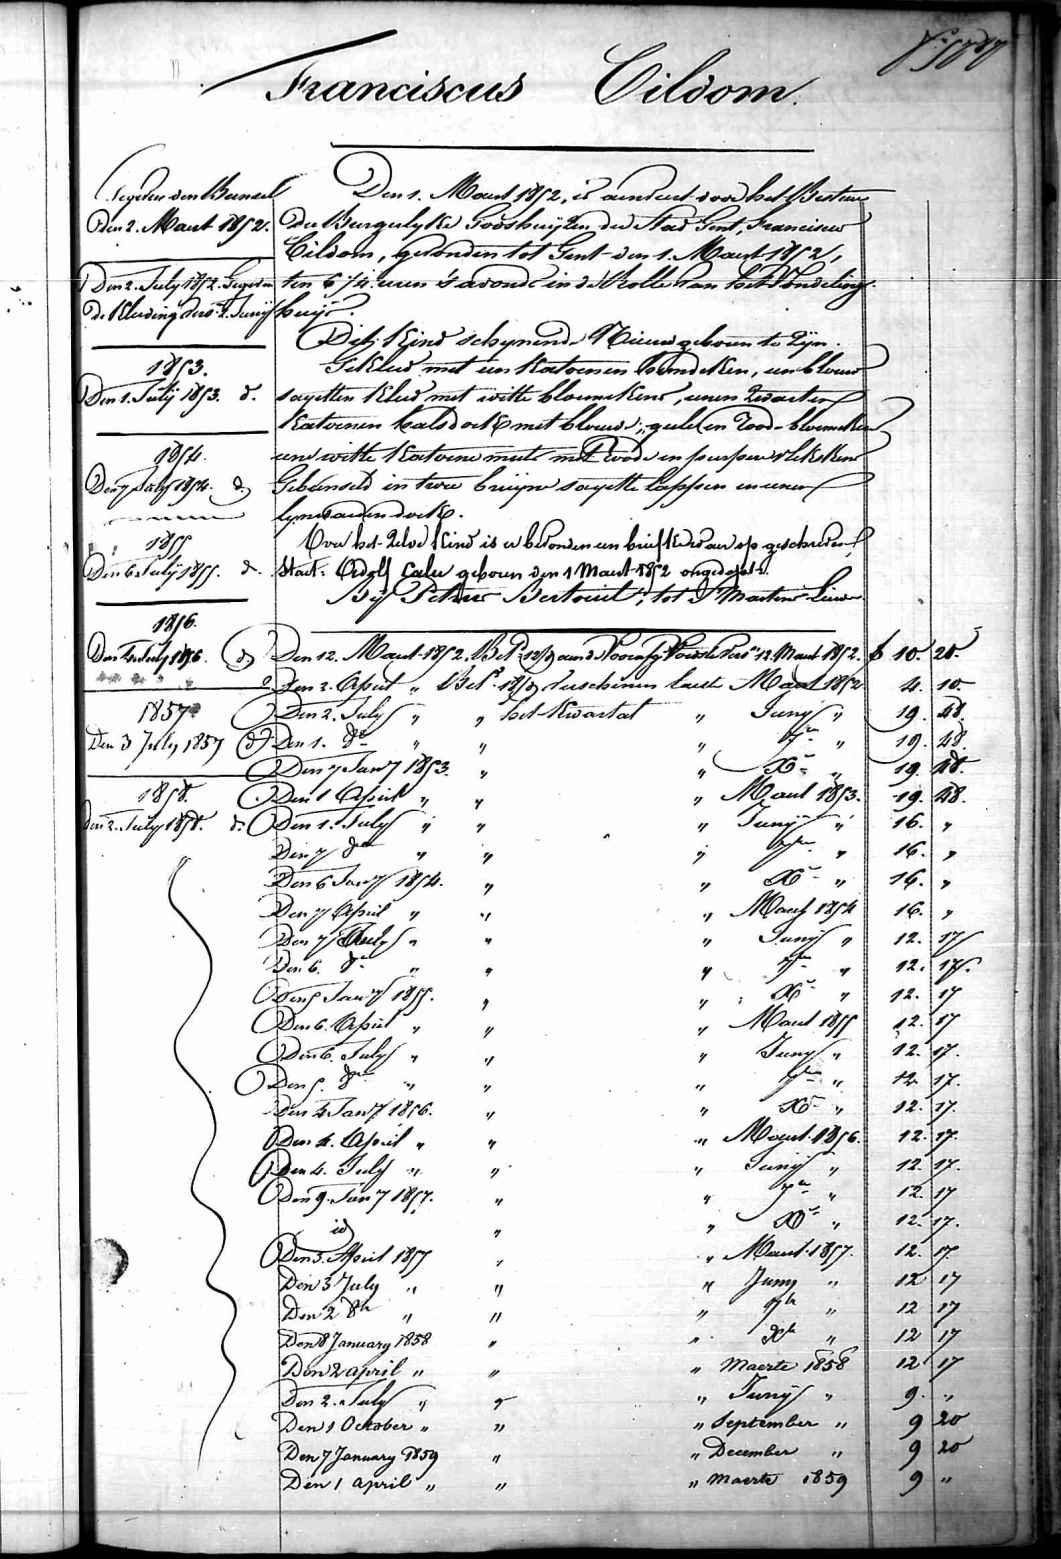 Franciscus Cildom.
Gegeven den Bunsel
Den 2. Maert 1852.
Den 2. July 1852. Gegeven
de Kleeding
1853.
Den 1. July 1853. d.
1854.
Den 7 July 1854. d.
1855
Den 6 July 1855. d.
1856.
Den 4 July 1856. d.
1857
Den 3 July 1857 d.
1858.
Den 2. July 1858. d.
Den 1. Maert 1852, is door het Bestuur
Der Burgerlyke Godshuijzen der Stad Gent, Franciscus
Cildom, gevonden tot Gent den 1. Maert 1852,
ten 6 3/4 uren 's avonds in de Rolle van het Vondeling
huijs.
Dit Kind schynende Nieuw geboren te Zyn.
Gekleed met een Katoenen hemdeken, een blauw
sayetten kleed met witte bloemekens, eenen zwarten
Katoenen halsdoek met blauwe, gele en Rood bloemeken
eene witte Katoene muts met Roode en purpere vlekskens
Gebunseld in twee bruyne sayette lappen en eenen
lynwaeden doek.
Over het Zelve Kind is er bevonden een briefken waer op geschreven
staet: Adolf Calu geboren den 1 Maert 1852 ongedoopt.
Bij Petrus , tot St Martens Lierde
Den 12. Maert 1852. 12. Maert 1852. 10. 20.
Den 2. April " Maert 1852 4. 10.
Den 2. July " " het Kwartal " Juny " 19. 48.
Den 1. 8re " " " 7re " 19. 48.
Den 7 Jany 1853. " " Xre " 19. 48.
Den 1 April " " " Maert 1853. 19. 48.
Den 1. July " " " Juny " 16. "
Den 7 8re " " " 7re " 16. "
Den 6 Jany 1854. " " Xre " 16. "
Den 7 April " " " Maert 1854 16. "
Den 7 July " " " Juny " 12. 17
Den 6. 8re " " " 7re " 12. 17.
Den 5 Jany 1855. " " Xre " 12. 17
Den 6. April " " " Maert 1855 12. 17
Den 6. July " " " Juny " 12. 17.
Den 5. 8re " " " 7re " 12 17.
Den 4 Jany 1856. " " Xre " 12. 17.
Den 4. April " " " Maert 1856. 12. 17.
Den 4. July " " " Juny " 12. 17.
Den 9. Jany 1857. " " 7re " 12. 17
id " " Xre " 12. 17.
Den 3. April 1857 " " Maert 1857. 12. 17.
Den 3 July " " " Juny " 12 17
Den 2 8re " " " 7re " 12 17
Den 8 January 1858 " " Xre " 12 17
Den 2 april " " " Maerte 1858 12 17
Den 2. July " " " Juny " 9. "
Den 1 October " " " September " 9 20
Den 7 January 1859 " " December " 9 20
Den 1 april " " " Maerte 1859 9 "